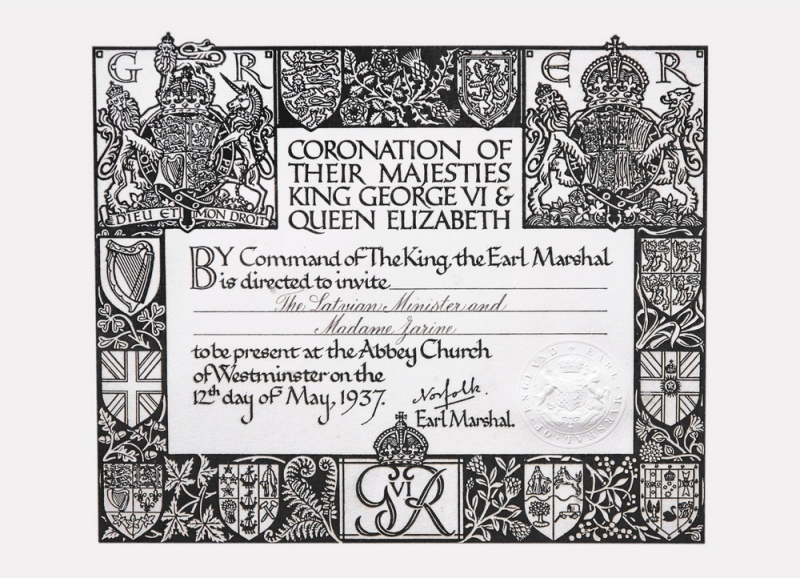 G R
E R
CORONATION OF
THEIR MAJESTIES
KING GEORGE VI &
QUEEN ELIZABETH
DIEU ET MON DROIT
BY Command of The King, the Earl Marshal
is directed to invite
The Latvian Minister and
Madame Zarine
to be present at the Abbey Church
of Westminster on the
12th day of May, 1937.
Norfolk.
Earl Marshal.
EARL MARSHAL OF ENGLAND
G VI R